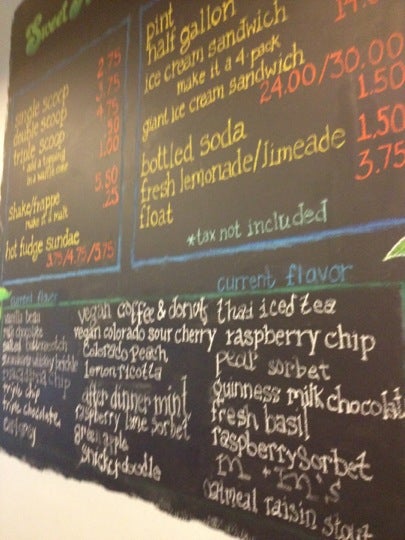 Sweet
single scoop 2.75
double scoop 3.75
triple scoop 4.75
add a topping .50
in a waffle cone 1.00
shake/frappe 5.50
make it a malt .25
hot fudge sundae
3.75/4.75/5.75
pint
half gallon
ice cream sandwich
make it a 4-pack
giant ice cream sandwich
24.00/30.00
bottled soda 1.50
fresh lemonade/limeade 1.50
float 3.75
*tax not included
current flavor
vanilla bean
milk chocolate
salted butterscotch
chip
triple chip
triple chocolate
vegan coffee & donuts
vegan colorado sour cherry
Colorado Peach
lemon ricotta
after dinner mint
raspberry lime sorbet
green apple
snickerdoodle
current flavor
thai iced tea
raspberry chip
pear sorbet
guinness milk chocolat
fresh basil
raspberry sorbet
m + m's
oatmeal raisin stout